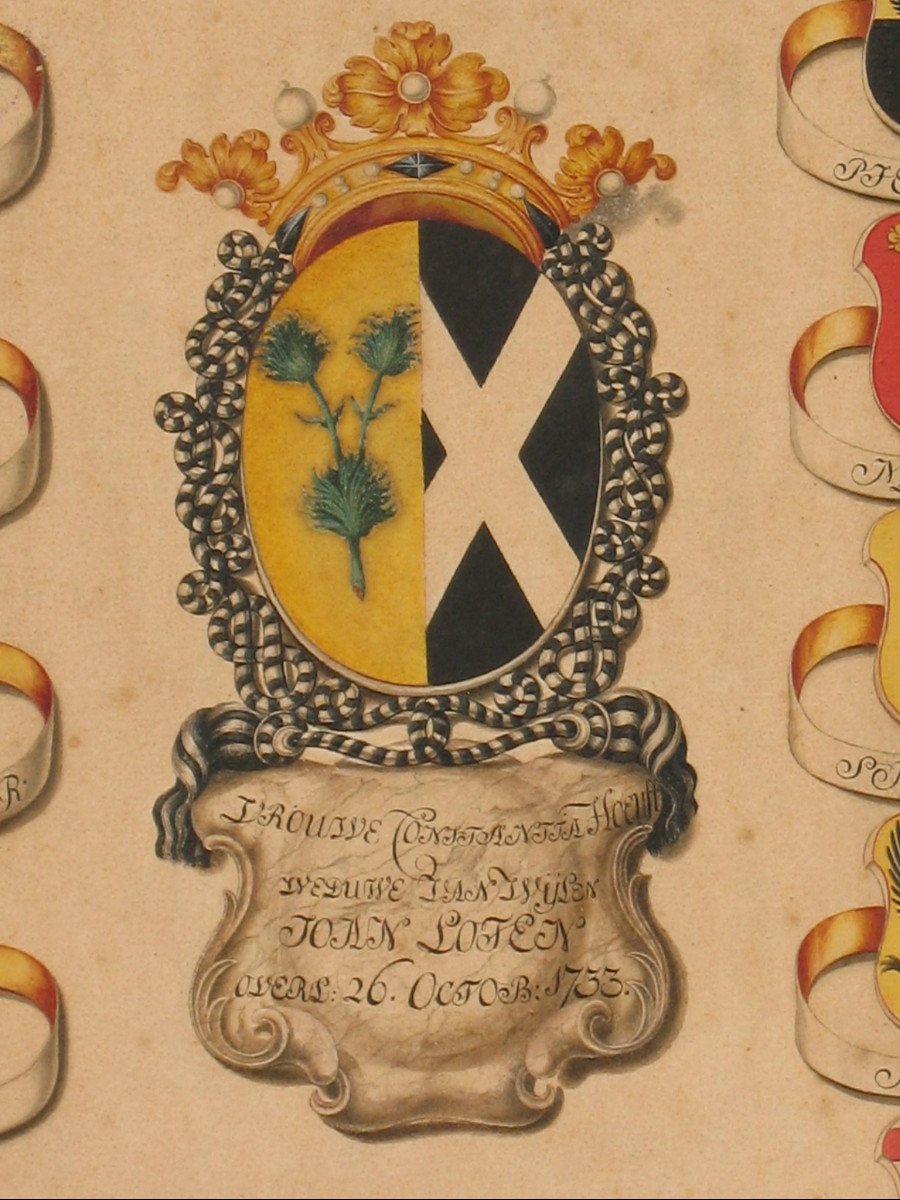 VROUWE CONSTANTIA Hoeuft
WEDUWE VAN WijLEN
JOAN LOTEN
OVERL: 26. OCTOB: 1733.
R.